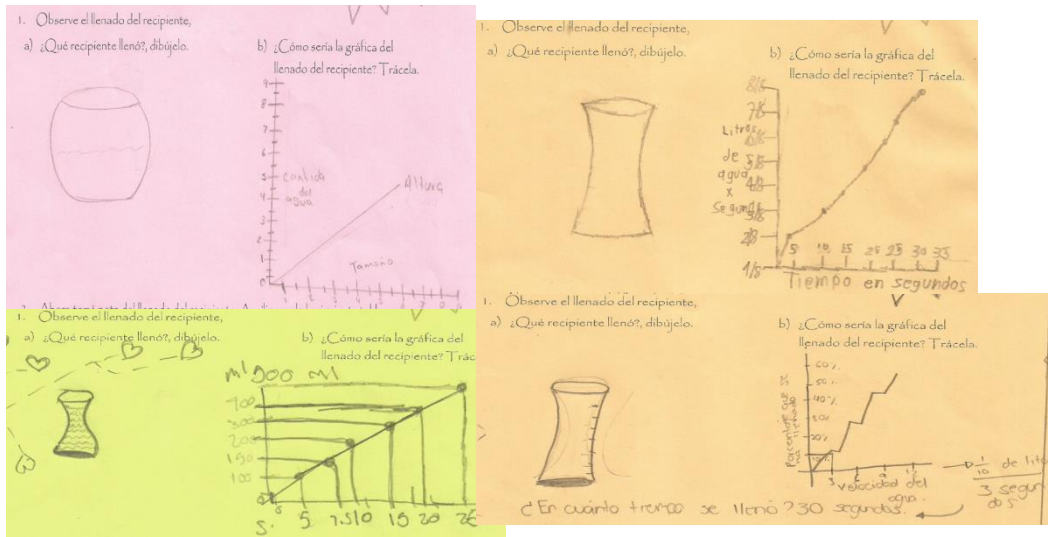 1. Observe el llenado del recipiente,
a) ¿Qué recipiente llenó?, dibújelo.
b) ¿Cómo sería la gráfica del
llenado del recipiente? Trácela.
9
8
7
6
5
4
3
2
1
0
Altura
Tamaño
1. Observe el llenado del recipiente,
a) ¿Qué recipiente llenó?, dibújelo.
b) ¿Cómo sería la gráfica del
llenado del recipiente? Trácela.
8/8
7/8
Litros
de 5/8
agua 4/8
x
2/8
1/8
5 10 15 25 25 30 35
Tiempo en segundos
1. Observe el llenado del recipiente,
a) ¿Qué recipiente llenó?, dibújelo.
b) ¿Cómo sería la gráfica del
llenado del recipiente? Trác
ml 900 ml
300
200
150
100
S. 5 7.5 10 15 20
1. Observe el llenado del recipiente,
a) ¿Qué recipiente llenó?, dibújelo.
b) ¿Cómo sería la gráfica del
llenado del recipiente? Trácela.
60%
50%
40%
30%
20%
10%
Porcentaje que es
llenado
3
Velocidad del
agua.
1/10 de lit
3 segun
dos
¿En cuánto tiempo se llenó? 30 segundos.